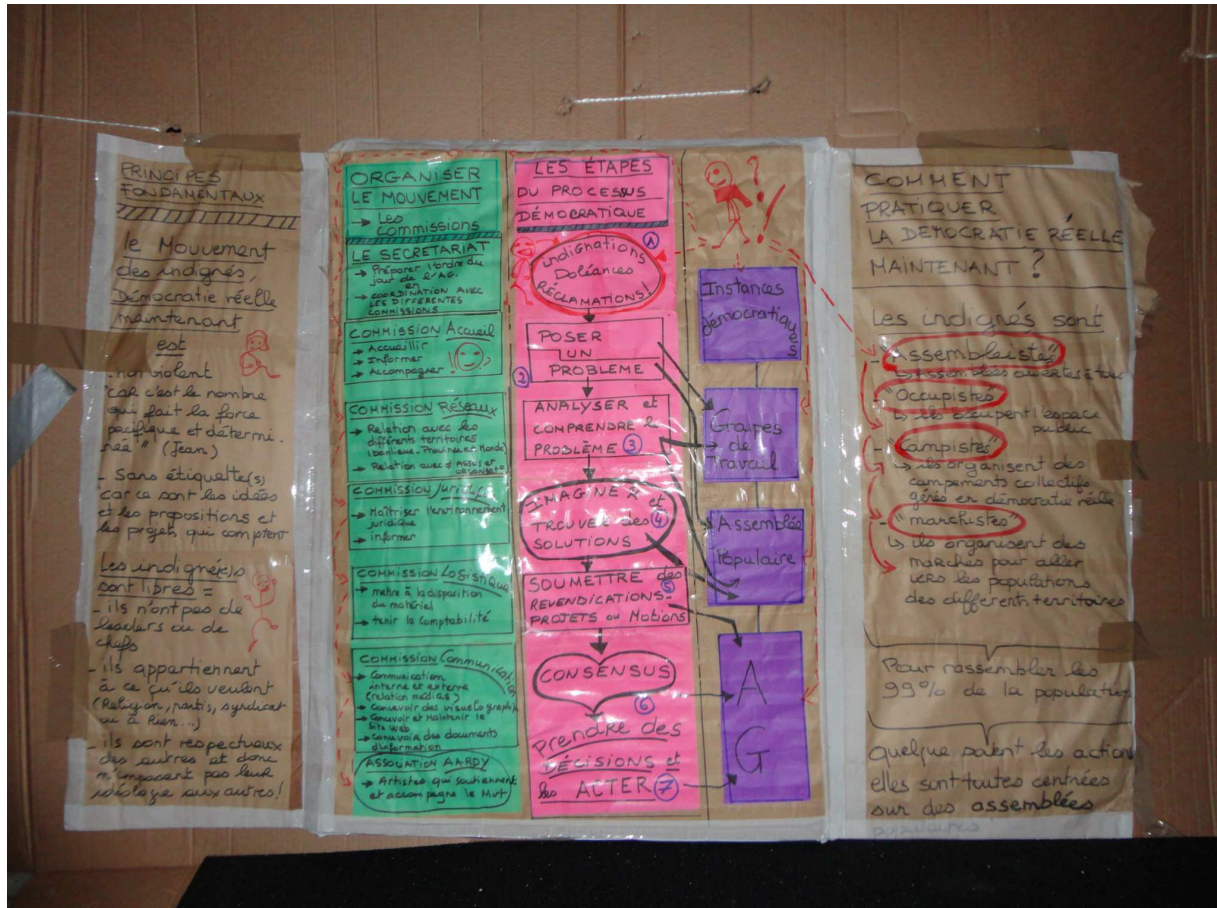 PRINCIPES
FONDAMENTAUX
le Mouvement
des indignés,
Démocratie réelle
maintenant
est
- non violent
"car c'est le nombre
qui fait la force
pacifique et détermi-
née" (Jean)
- Sans étiquette(s)
car ce sont les idées
et les propositions et
les projets qui comptent
Les indigné(e)s
sont libres =
- ils n'ont pas de
leaders ou de
chefs
- ils appartiennent
à ce qu'ils veulent
(Religion, partis, syndicat
ou à Rien...)
- ils sont respectueux
des autres et donc
n'imposent pas leur
idéologie aux autres!
ORGANISER
LE MOUVEMENT
→ Les
commissions
LE SECRETARIAT
→ Préparer l'ordre du
jour de l'AG
en
→ COORDINATION AVEC
LES DIFFERENTES
COMMISSIONS
COMMISSION Accueil
→ Accueillir
→ Informer
→ Accompagner
COMMISSION Réseaux
→ Relation avec les
différents territoires
(banlieue. Province et Monde)
→ Relation avec d'ASSOS et
COMMISSION Juridique
→ Maîtriser l'environnement
juridique
→ informer
COMMISSION Logistique
→ mettre à la disposition
du matériel
→ tenir la comptabilité
COMMISSION Communication
→ Communication
interne et externe
(relation médias)
→ Concevoir des visuels
→ Concevoir et Maintenir le
Site web
→ Concevoir des documents
d'information
ASSOCIATION AARDY
→ Artistes qui soutiennent
et accompagne le Mvt
LES ÉTAPES
DU PROCESSUS
DÉMOCRATIQUE
1
indignations
Doléances
RÉCLAMATIONS!
POSER
UN
PROBLEME
2
ANALYSER et
COMPRENDRE le
PROBLÈME 3
IMAGINER et
TROUVER des 4
SOLUTIONS
SOUMETTRE des
5
REVENDICATIONS-
PROJETS ou Motions
CONSENSUS
6
Prendre des
DÉCISIONS et
les ACTER 7
? !
Instances
démocratiques
Groupes
de
Travail
Assemblée
Populaire
A
G
COMMENT
PRATIQUER
LA DEMOCRATIE RÉELLE
MAINTENANT ?
Les indignés sont
- "Assembléistes"
↳ Assemblées ouvertes à tous
- "Occupistes"
↳ ils occupent l'espace
public
- "Campistes"
↳ ils organisent des
campements collectifs
gérés en démocratie réelle
- "marchistes"
↳ ils organisent des
marches pour aller
vers les populations
des différents territoires
Pour rassembler les
99% de la population
Quelque soient les actions
elles sont toutes centrées
sur des assemblées
populaires